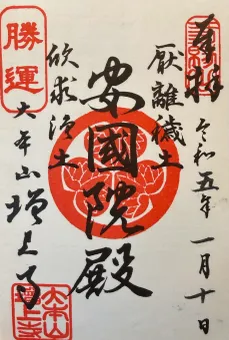 奉拝
令和五年一月十日
厭離穢土
安國院殿
欣求浄土
大本山増上寺
勝運
大本山
増上寺